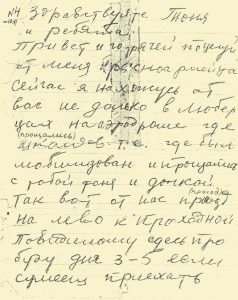 №4 Здравствуйте Тоня
и ребята.
Привет и горячей поцелуй
от меня красноармейца
Сейчас я нахожусь от
вас не далеко в Любер
цах на аэродроме где
(прощались)
т.е. где был
мобилизован и прощался
с тобой Тоня и дочкой
(проход)
Так вот от нас
на лево к проходной
Повидимому здесь про
буду дня 3-5 если
сумееш приехать